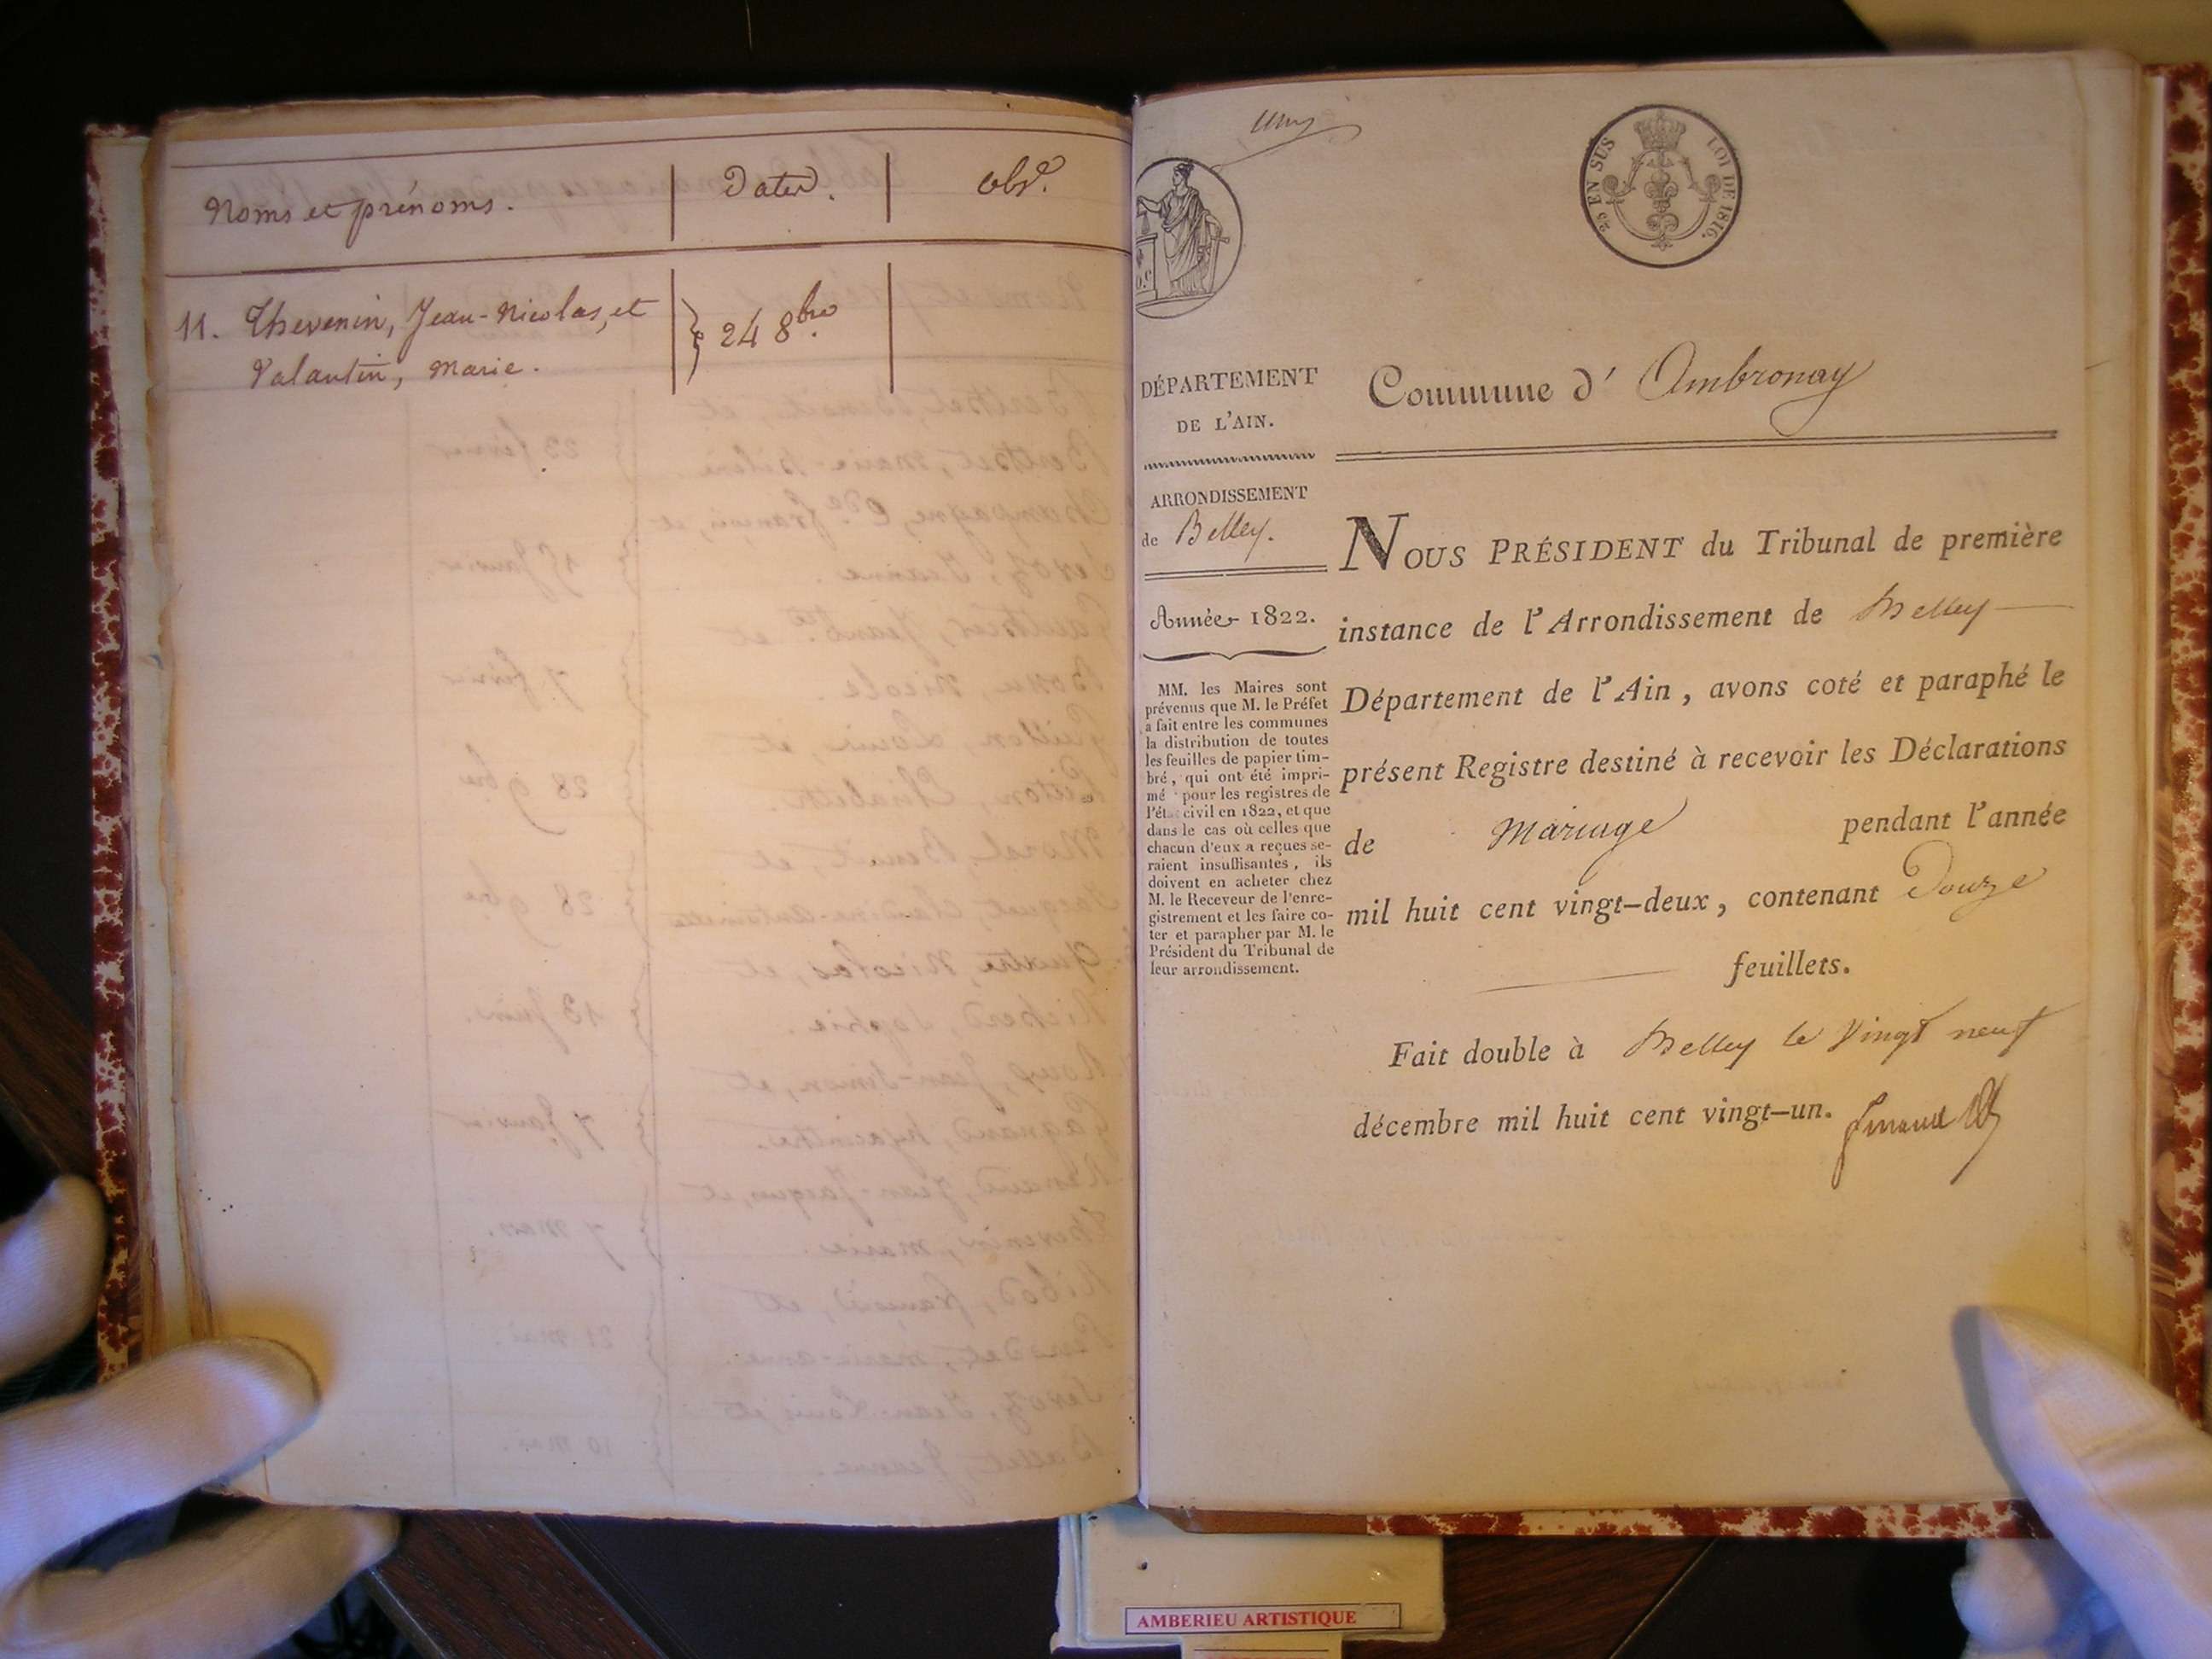 Noms et prénoms.
Dates.
obs.
11. Thevenin, Jean-Nicolas, et
Valantin, marie.
24 8bre
25 EN SUS
LOI DE 1816.
DÉPARTEMENT
DE L'AIN.
ARRONDISSEMENT
de Belley.
Année 1822.
MM. les Maires sont
prévenus que M. le Préfet
a fait entre les communes
la distribution de toutes
les feuilles de papier tim-
bré, qui ont été impri-
mé pour les registres de
l'état civil en 1822, et que
dans le cas où celles que
chacun d'eux a reçues se-
raient insuffisantes, ils
doivent en acheter chez
M. le Receveur de l'enre-
gistrement et les faire co-
ter et parapher par M. le
Président du Tribunal de
leur arrondissement.
Commune d'Ambronay
NOUS PRÉSIDENT du Tribunal de première
instance de l'Arrondissement de Belley
Département de l'Ain, avons coté et paraphé le
présent Registre destiné à recevoir les Déclarations
de Mariage pendant l'année
mil huit cent vingt-deux, contenant Douze
feuillets.
Fait double à Belley le Vingt neuf
décembre mil huit cent vingt-un.
AMBERIEU ARTISTIQUE